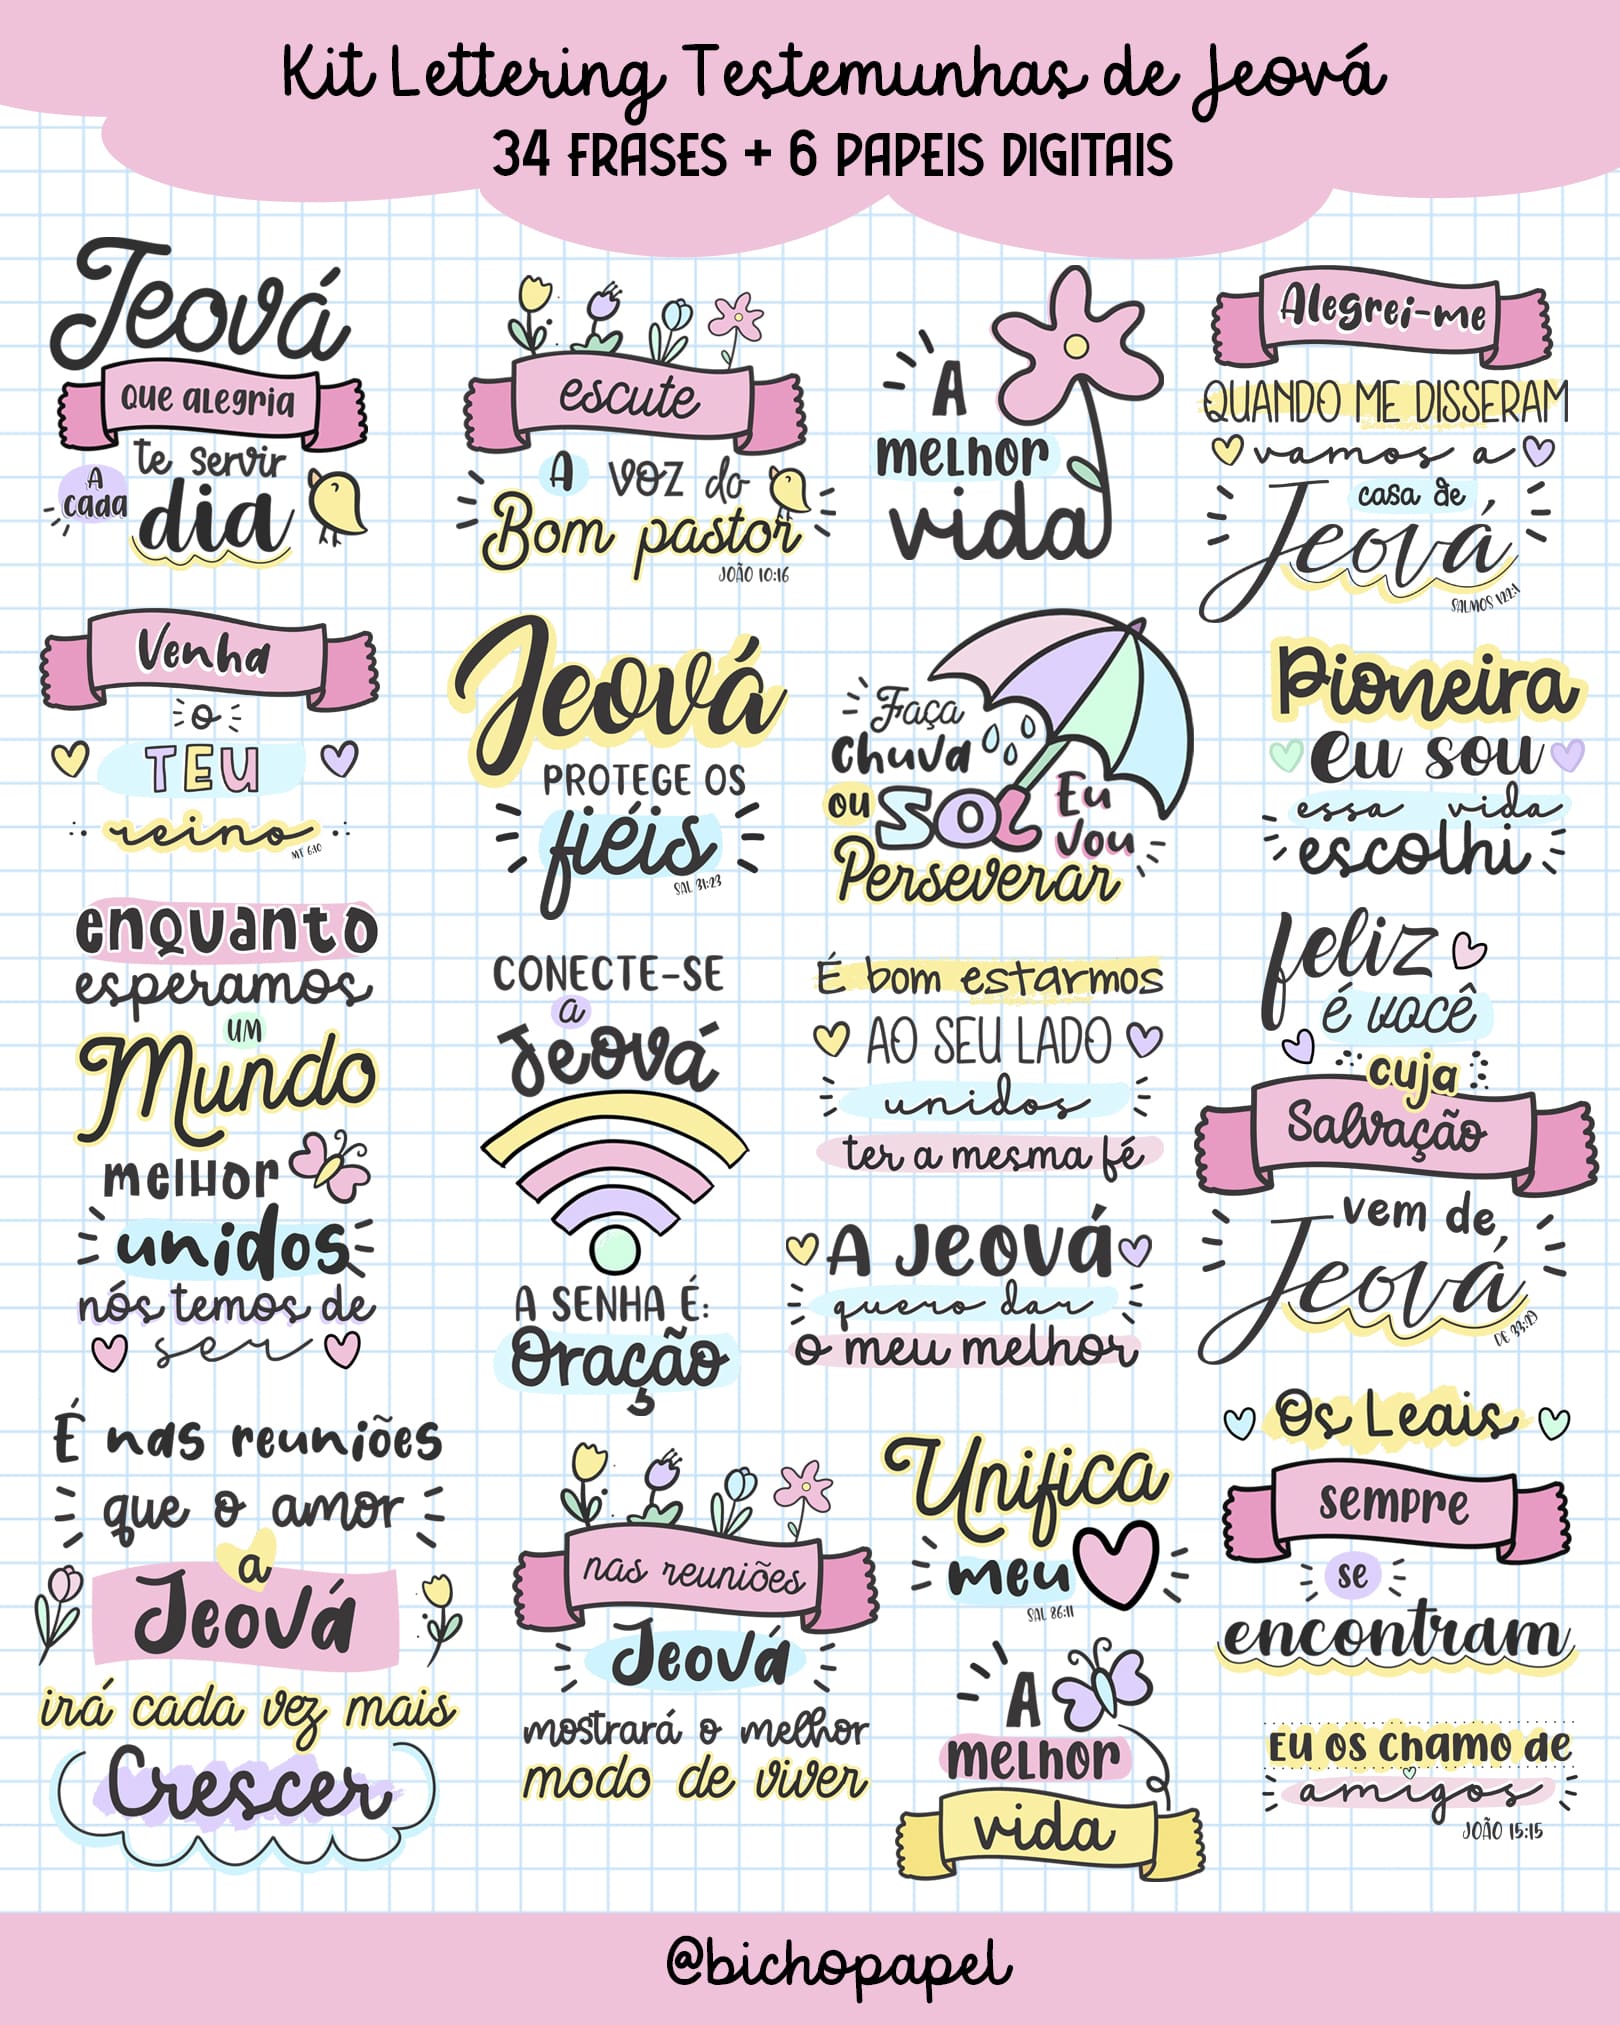 Kit Lettering Testemunhas de Jeová
34 FRASES + 6 PAPEIS DIGITAIS
Jeová
que alegria
te servir
A
cada
dia
escute
A voz do
Bom pastor
JOÃO 10:16
A
melhor
vida
Alegrei-me
QUANDO ME DISSERAM
vamos a
casa de
Jeová
SALMOS 122:1
Venha
o
TEU
reino
MT 6:10
Jeová
PROTEGE OS
fiéis
SAL 31:23
Faça
chuva
ou SOL
Eu
vou
Perseverar
Pioneira
eu sou
essa vida
escolhi
enquanto
esperamos
UM
Mundo
melhor
unidos
nós temos de
ser
CONECTE-SE
a
Jeová
A SENHA É:
Oração
É bom estarmos
AO SEU LADO
unidos
ter a mesma fé
A Jeová
quero dar
o meu melhor
feliz
é você
cuja
Salvação
vem de
Jeová
DE 33:29
É nas reuniões
que o amor
a
Jeová
irá cada vez mais
Crescer
nas reuniões
Jeová
mostrará o melhor
modo de viver
Unifica
meu
SAL 86:11
A
melhor
vida
Os Leais
sempre
se
encontram
Eu os chamo de
amigos
JOÃO 15:15
@bichopapel